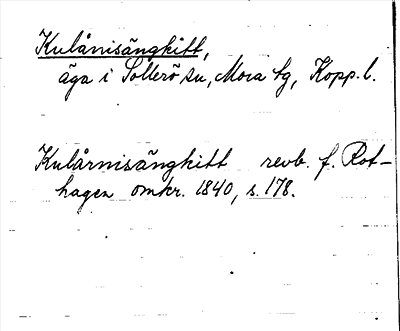 Kulånisängkitt,
äga i Sollerö sn, Mora tg, Kopp. l.
Kulårnisängkitt revb. f. Rot-
hagen omkr. 1840, s. 178.